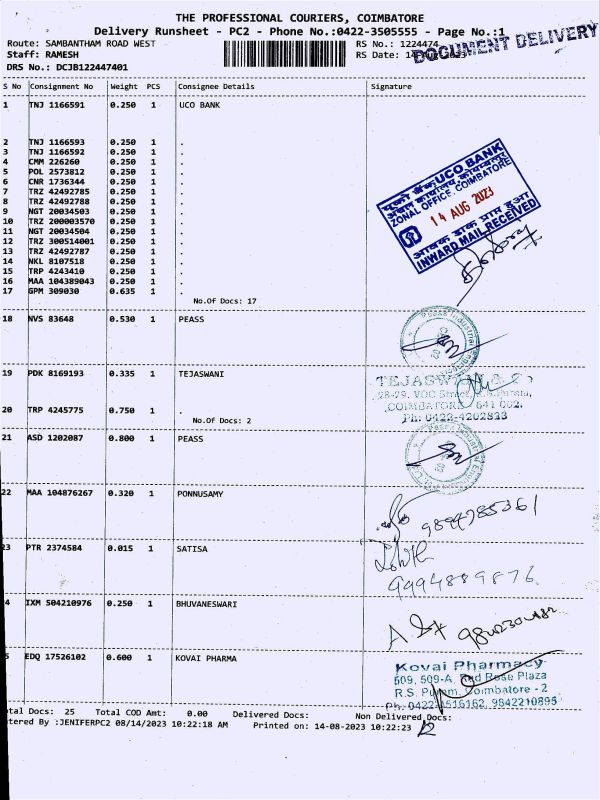 THE PROFESSIONAL COURIERS, COIMBATORE
Delivery Runsheet - PC2 - Phone No.:0422-3505555 - Page No.:1
Route: SAMBANTHAM ROAD WEST RS No.: 1224474
DOCUMENT DELIVERY
Staff: RAMESH RS Date: 14
DRS No.: DCJB122447401
S No Consignment No Weight PCS Consignee Details Signature
1 TNJ 1166591 0.250 1 UCO BANK
2 TNJ 1166593 0.250 1 .
3 TNJ 1166592 0.250 1 .
4 CMM 226260 0.250 1 .
5 POL 2573812 0.250 1 .
6 CNR 1736344 0.250 1 .
7 TRZ 42492785 0.250 1 .
8 TRZ 42492788 0.250 1 .
9 NGT 20034503 0.250 1 .
10 TRZ 200003570 0.250 1 .
11 NGT 20034504 0.250 1 .
12 TRZ 300514001 0.250 1 .
13 TRZ 42492787 0.250 1 .
14 NKL 8107518 0.250 1 .
15 TRP 4243410 0.250 1 .
16 MAA 104389043 0.250 1 .
17 GPM 309030 0.635 1 .
No.Of Docs: 17
यूको बैंक UCO BANK
अंचल कार्यालय, कोयम्बत्तूर
ZONAL OFFICE, COIMBATORE
14 AUG 2023
आवक डाक प्राप्त हुआ
INWARD MAIL RECEIVED
18 NVS 83648 0.530 1 PEASS
19 PDK 8169193 0.335 1 TEJASWANI
TEJASW & C
28-29, VOC Street,
COIMBATORE 641 002.
Ph: 0422-4202833
20 TRP 4245775 0.750 1 .
No.Of Docs: 2
21 ASD 1202087 0.800 1 PEASS
22 MAA 104876267 0.320 1 PONNUSAMY
9894785361
23 PTR 2374584 0.015 1 SATISA
9994889876
4 IXM 504210976 0.250 1 BHUVANESWARI
5 EDQ 17526102 0.600 1 KOVAI PHARMA
Kovai Pharmacy
509, 509-A, Red Rose Plaza
R.S. Puram, Coimbatore - 2
Ph: 0422-4516162, 9842210895
tal Docs: 25 Total COD Amt: 0.00 Delivered Docs: Non Delivered Docs:
tered By :JENIFERPC2 08/14/2023 10:22:18 AM Printed on: 14-08-2023 10:22:23